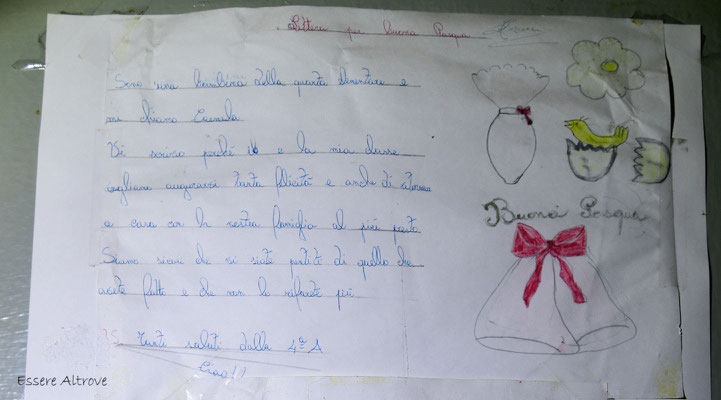 Lettera per buona Pasqua
Sono una bambina della quarta elementare e
mi chiamo
Vi scrivo perchè io e la mia classe
vogliamo augurarvi tanta felicità e anche di ritornare
a casa con la vostra famiglia al più presto
Siamo sicuri che vi siate pentiti di quello che
avete fatto e che non lo rifarete più.
Tanti saluti dalla 4ª A
Ciao!!
Buona Pasqua
Essere Altrove